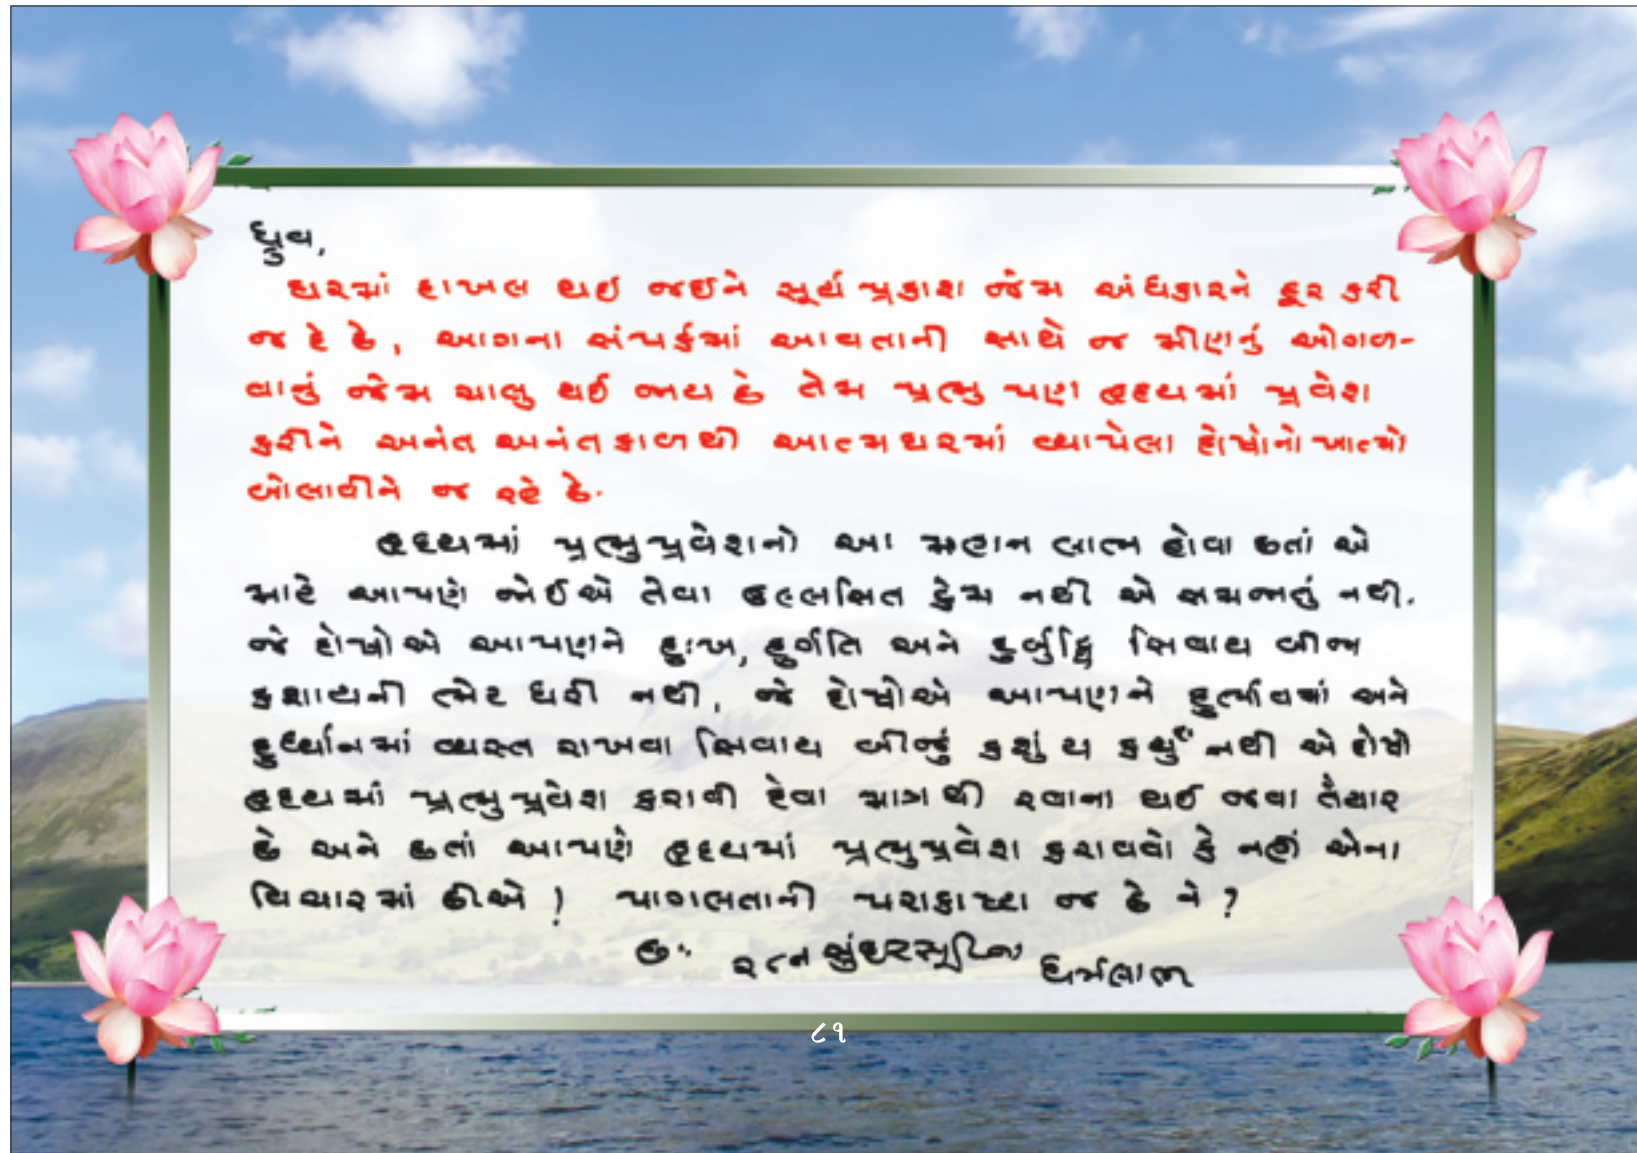 ધ્રુવ,
ઘરમાં દાખલ થઈ જઈને સૂર્ય પ્રકાશ જેમ અંધકારને દૂર કરી
જ દે છે, આગના સંપર્કમાં આવતાની સાથે જ મીણનું ઓગળ-
વાનું જેમ ચાલુ થઈ જાય છે તેમ પ્રભુ પણ હૃદયમાં પ્રવેશ
કરીને અનંત અનંતકાળથી આત્મઘરમાં વ્યાપેલા દોષોનો ખાત્મો
બોલાવીને જ રહે છે.
હૃદયમાં પ્રભુપ્રવેશનો આ મહાન લાભ હોવા છતાં એ
માટે આપણે જોઈએ તેવા ઉલ્લસિત કેમ નથી એ સમજાતું નથી.
જે દોષોએ આપણને દુઃખ, દુર્ગતિ અને દુર્બુદ્ધિ સિવાય બીજા
કશાયની ભેટ ધરી નથી, જે દોષોએ આપણને દુર્ભાવમાં અને
દુર્ધ્યાનમાં વ્યસ્ત રાખવા સિવાય બીજું કશું ય કર્યું નથી એ દોષો
હૃદયમાં પ્રભુપ્રવેશ કરાવી દેવા માત્રથી રવાના થઈ જવા તૈયાર
છે અને છતાં આપણે હૃદયમાં પ્રભુપ્રવેશ કરાવવો કે નહીં એના
વિચારમાં છીએ! પાગલતાની પરાકાષ્ઠા જ છે ને?
રત્નસુંદરસૂરિના ધર્મલાભ
૮૧